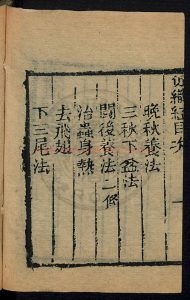 促織經目次
晚秋養法
三秋下盆法
鬪後養法二條
治蟲身熱
去飛翅
下三尾法